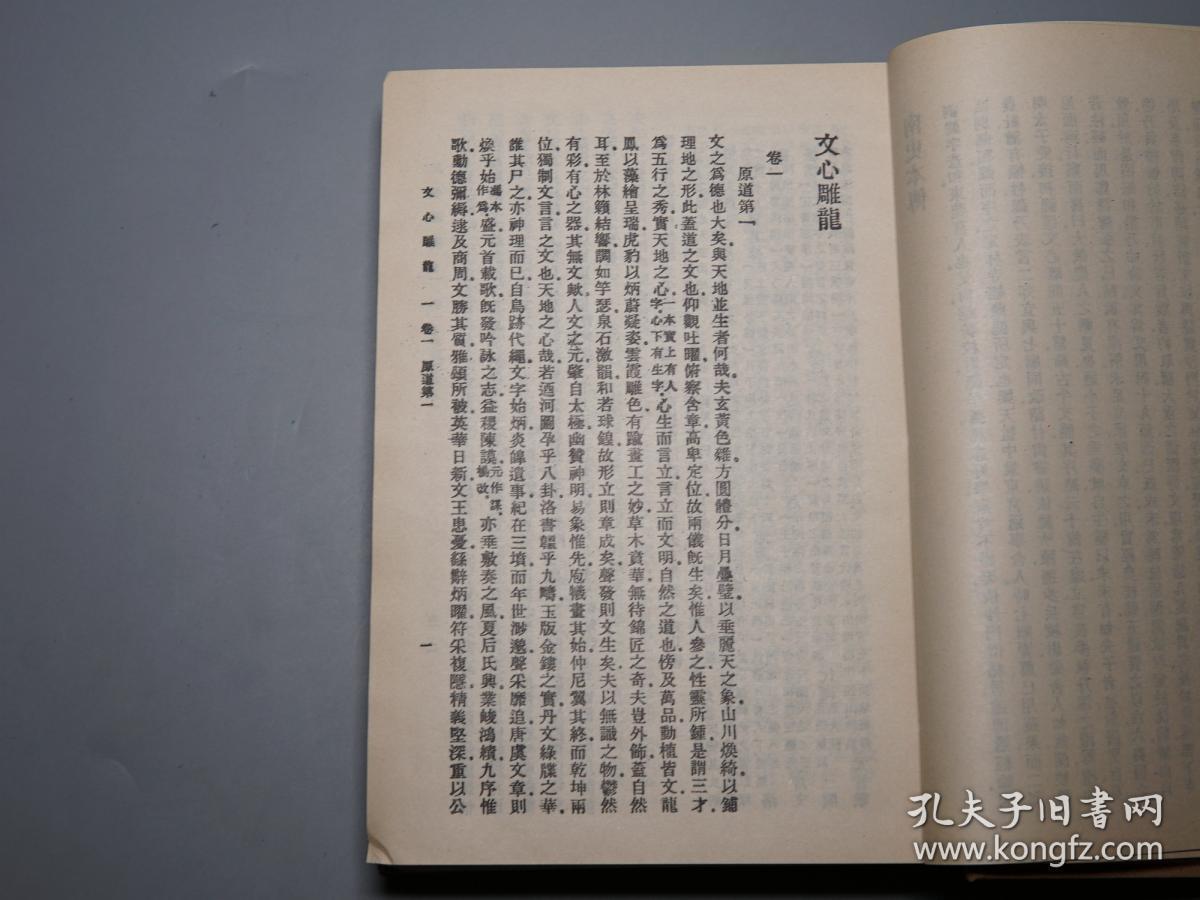 文心雕龍
卷一
原道第一
文之爲德也大矣。與天地並生者何哉。夫玄黃色雜。方圓體分。日月疊璧。以垂麗天之象。山川煥綺。以鋪
理地之形。此蓋道之文也。仰觀吐曜。俯察含章。高卑定位。故兩儀旣生矣。惟人參之。性靈所鍾。是謂三才。
爲五行之秀。實天地之心。一本實上有人字。心下有生字。心生而言立。言立而文明。自然之道也。傍及萬品。動植皆文。龍
鳳以藻繪呈瑞。虎豹以炳蔚凝姿。雲霞雕色。有踰畫工之妙。草木賁華。無待錦匠之奇。夫豈外飾。蓋自然
耳。至於林籟結響。調如竽瑟。泉石激韻。和若球鍠。故形立則章成矣。聲發則文生矣。夫以無識之物。鬱然
有彩。有心之器。其無文歟。人文之元。肇自太極。幽贊神明。易象惟先。庖犧畫其始。仲尼翼其終。而乾坤兩
位。獨制文言。言之文也。天地之心哉。若迺河圖孕乎八卦。洛書韞乎九疇。玉版金鏤之實。丹文綠牒之華。
誰其尸之。亦神理而已。自鳥跡代繩。文字始炳。炎皞遺事。紀在三墳。而年世渺邈。聲采靡追。唐虞文章。則
煥乎始馮本作爲。盛。元首載歌。旣發吟詠之志。益稷陳謨。元作謀。楊改。亦垂敷奏之風。夏后氏興。業峻鴻績。九序惟
歌。勳德彌縟。逮及商周。文勝其質。雅頌所被。英華日新。文王患憂。繇辭炳曜。符采複隱。精義堅深。重以公
文心雕龍 一 卷一 原道第一
一
孔夫子旧书网
www.kongfz.com